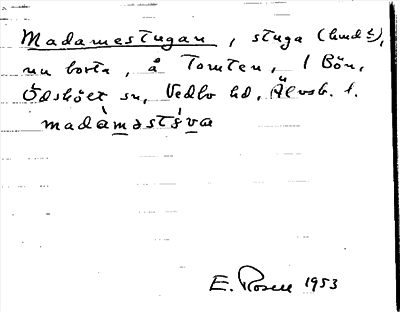 Madamestugan, stuga (hmd t),
nu borta, å Tomten, 1 Bön,
Ödsköët sn, Vedbo hd, Älvsb. l.
madàmastśva
E. Rosell 1953